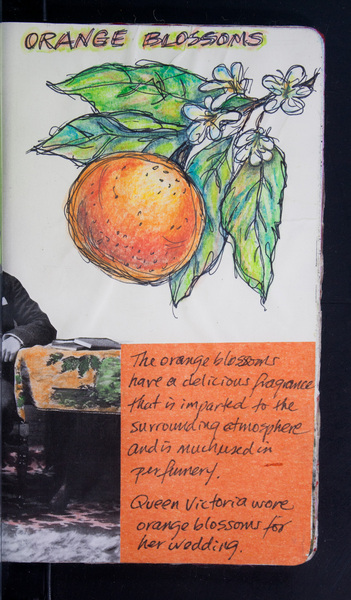 ORANGE BLOSSOMS
The orange blossoms
have a delicious fragrance
that is imparted to the
surrounding atmosphere
and is much used in
perfumery.
Queen Victoria wore
orange blossoms for
her wedding.